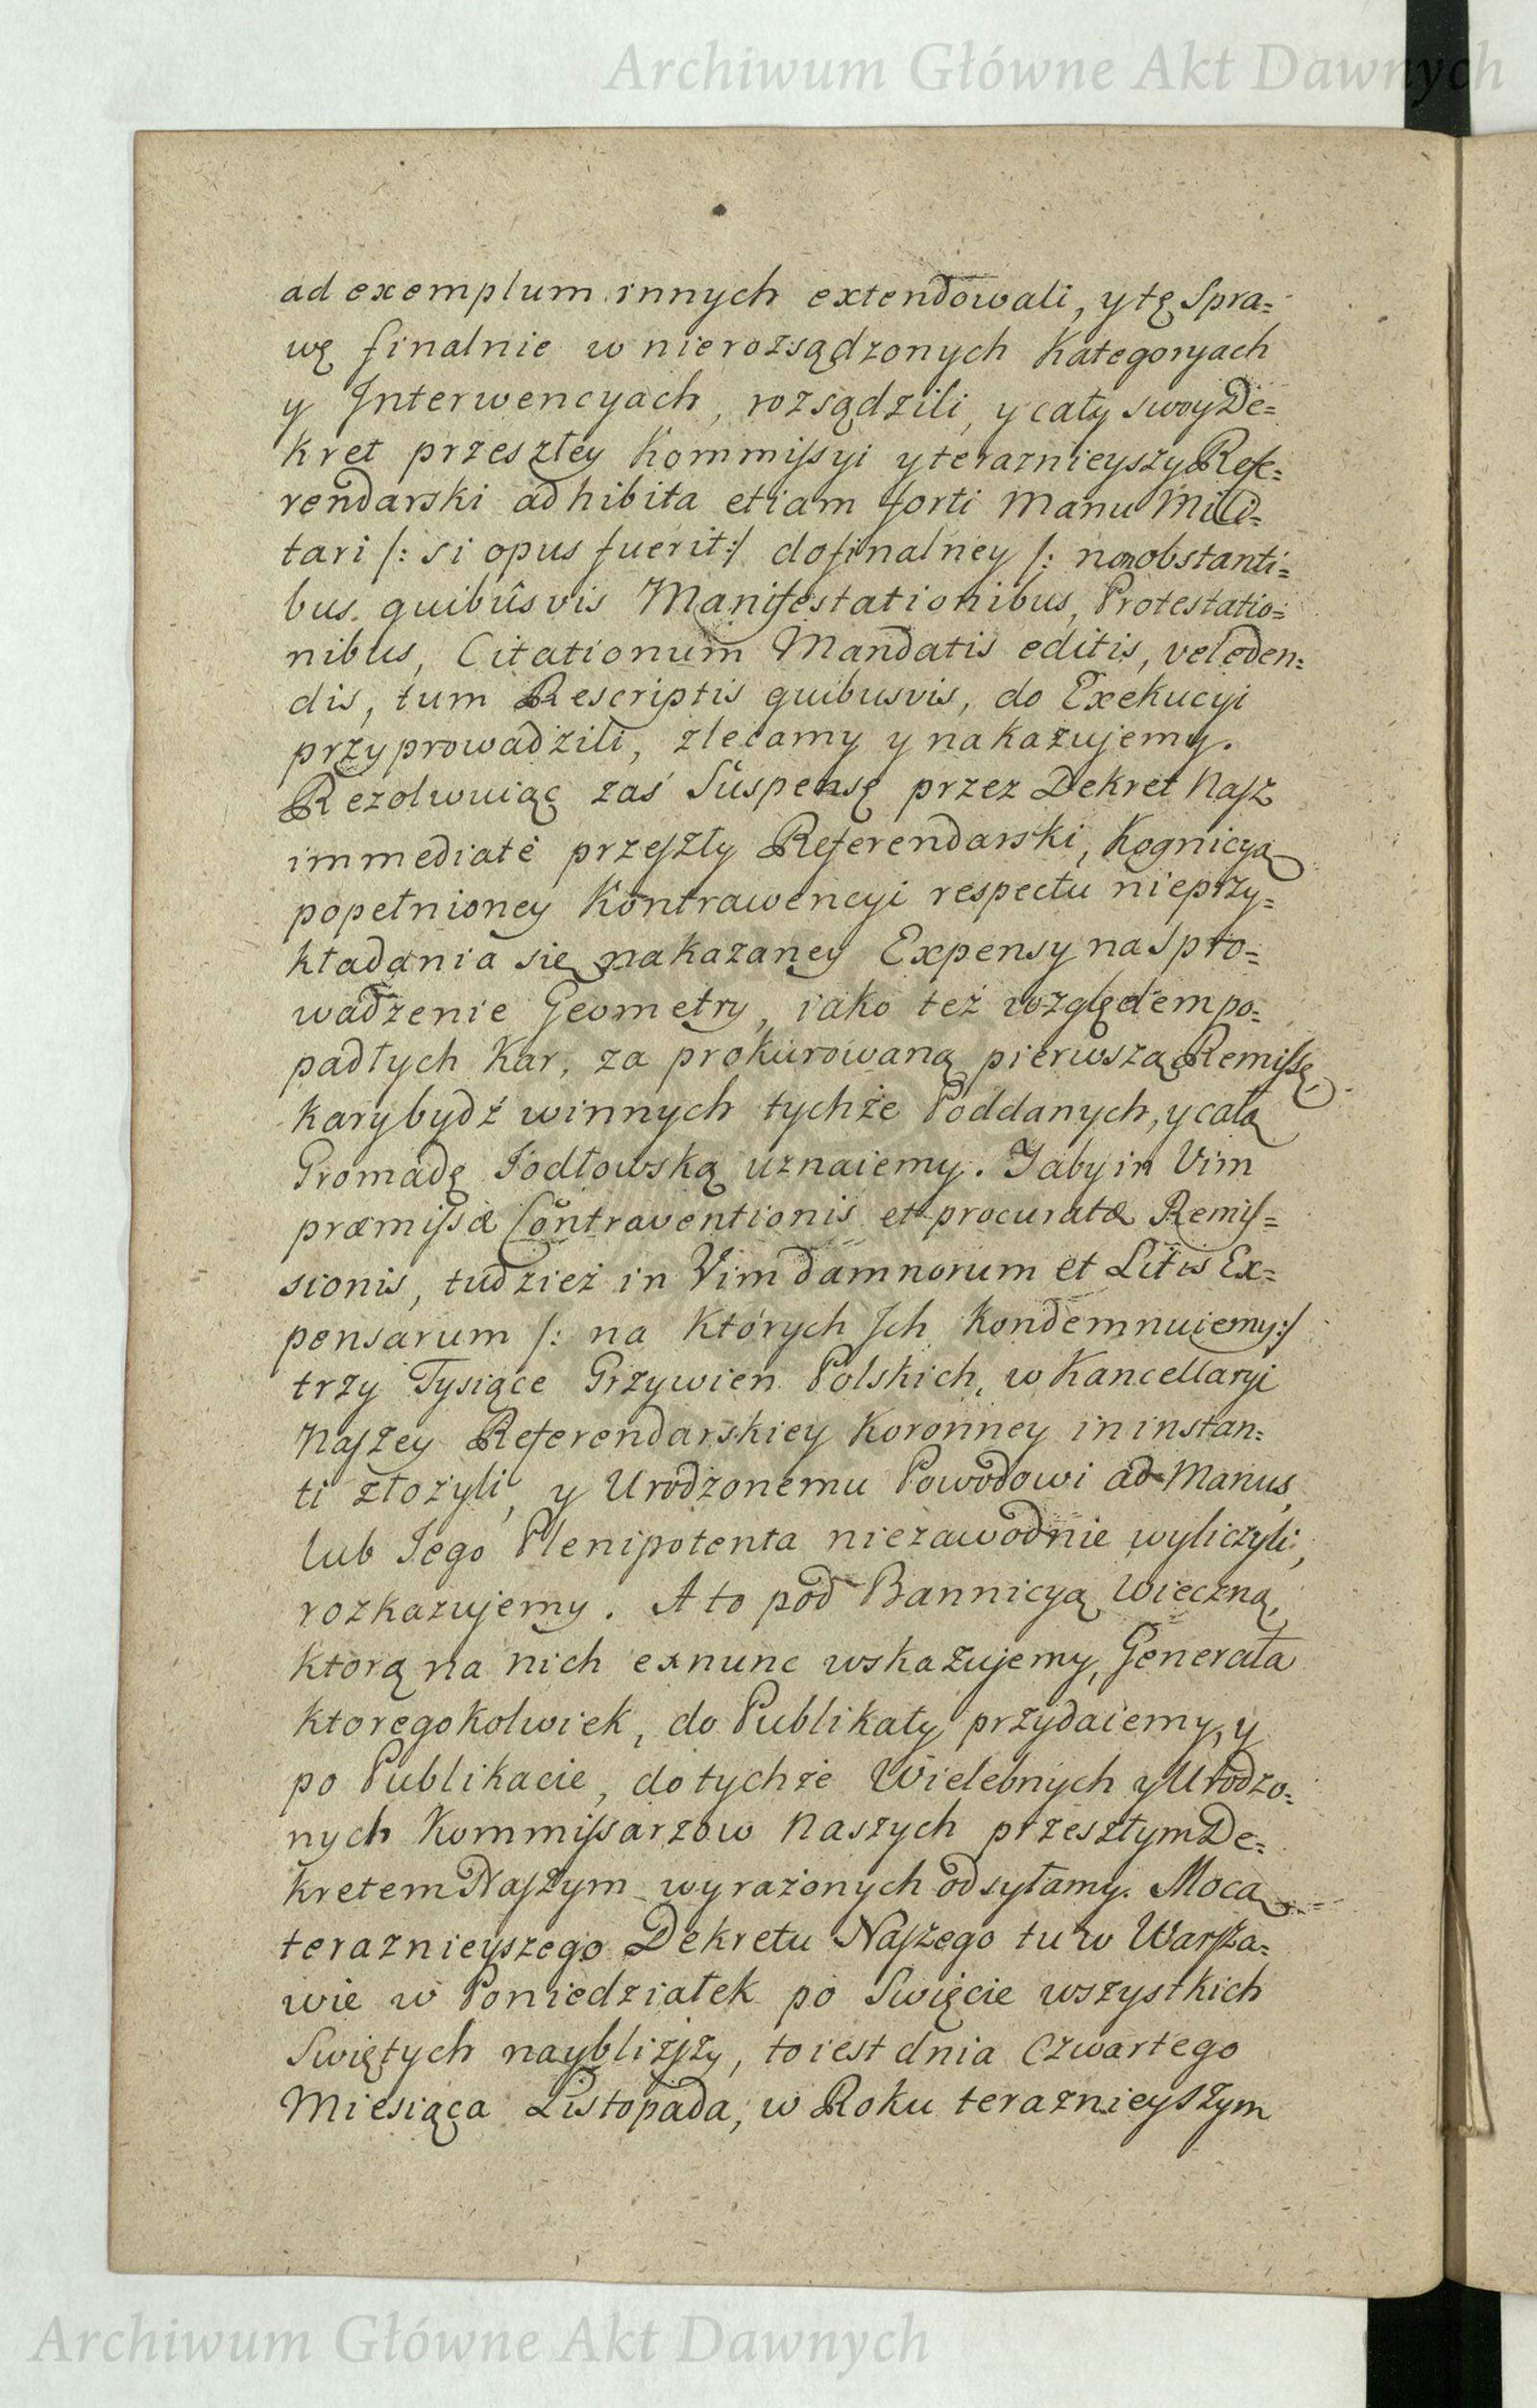 Archiwum Główne Akt Dawnych
ad exemplum innych extendowali, y tę Spra=
wę finalnie w nierozsądzonych Kategoryach
y Interwencyach, rozsądzili, y cały swoy De=
kret przeszłey Kommissyi y teraznieyszy Refe=
rendarski adhibita etiam forti Manu Mili=
tari /: si opus fuerit :/ do finalney /: non obstanti=
bus quibusvis Manifestationibus, Protestatio=
nibus, Citationum Mandatis editis, vel eden=
dis, tum Rescriptis quibusvis, do Exekucyi
przyprowadzili, zlecamy y nakazujemy.
Rezolwuiąc zaś Suspensę przez Dekret Nasz
immediatè przeszły Referendarski, Kognicyą
popełnioney Kontrawencyi respectu nieprzy=
kładania się nakazaney Expensy na spro=
wadzenie Geometry, iako też względem po=
padłych Kar, za prokurowaną pierwszą Remissę
Kary bydź winnych tychże Poddanych, y całą
Gromadę Jodłowską uznaiemy. Jaby in Vim
præmissæ Contraventionis et procuratæ Remis=
sionis, tudzież in Vim damnorum et Litis Ex=
pensarum /: na Których Ich Kondemnuiemy :/
trzy Tysiące Grzywien Polskich, w Kancellaryi
Naszey Referendarskiey Koronney in instan=
ti złożyli, y Urodzonemu Powodowi ad Manus,
lub Jego Plenipotenta niezawodnie wyliczyli,
rozkazujemy. A to pod Bannicyą Wieczną,
ktorą na nich exnunc wskazujemy, Generała
ktoregokolwiek, do Publikaty przydaiemy, y
po Publikacie, do tychże Wielebnych y Urodzo=
nych Kommissarzow Naszych przeszłym De=
kretem Naszym wyrażonych odsyłamy. Mocą
teraznieyszego Dekretu Naszego tu w Warsza=
wie w Poniedziałek po Swięcie wszystkich
Swiętych naybliższy, to iest dnia Czwartego
Miesiąca Listopada, w Roku teraznieyszym
Archiwum Główne Akt Dawnych